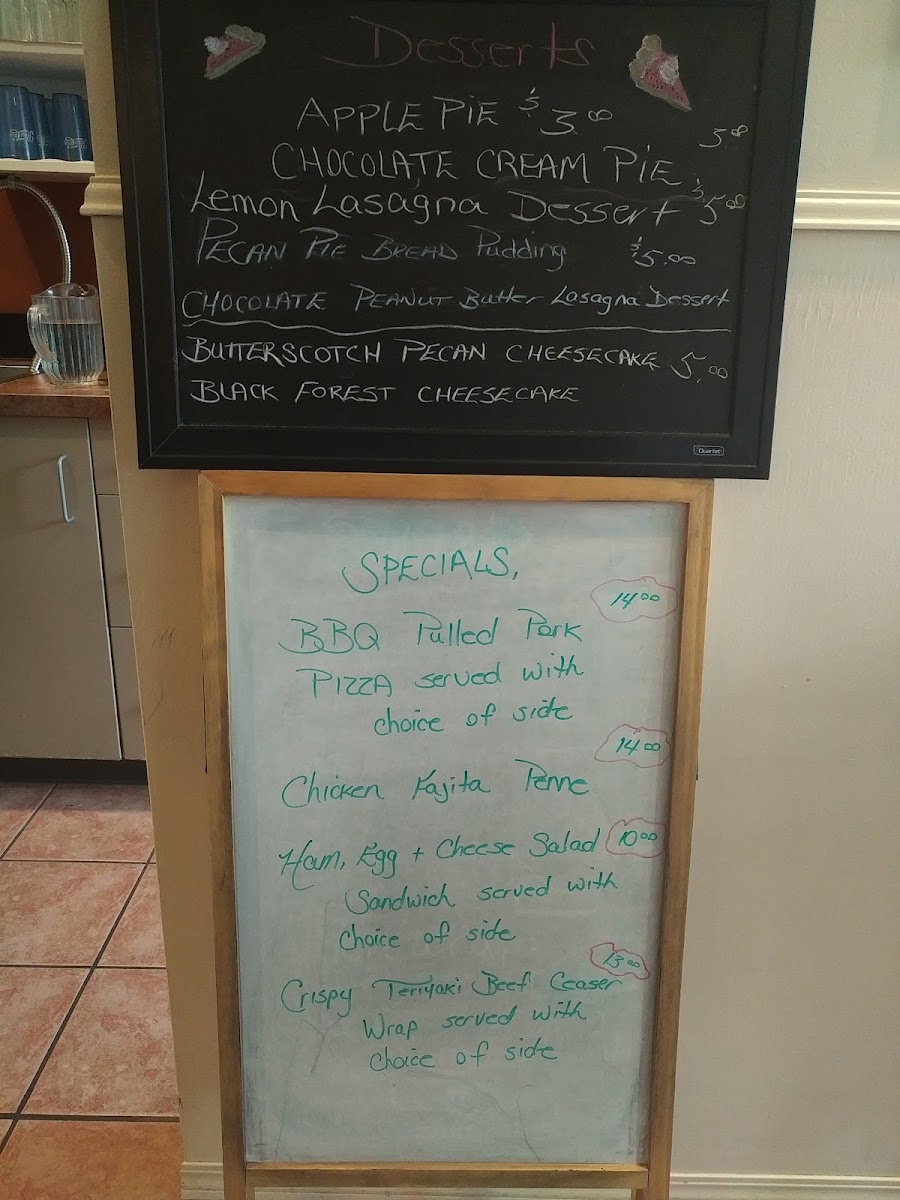 Desserts
APPLE PIE $3.00
5.00
CHOCOLATE CREAM PIE
Lemon Lasagna Dessert $5.00
PECAN PIE BREAD Pudding $5.00
CHOCOLATE PEANUT Butter Lasagna Dessert
BUTTERSCOTCH PECAN CHEESECAKE 5.00
BLACK FOREST CHEESECAKE
Quartet
SPECIALS,
14.00
BBQ Pulled Pork
PIZZA served with
choice of side
14.00
Chicken Fajita Penne
Ham, Egg + Cheese Salad 10.00
Sandwich served with
Choice of side
13.00
Crispy Teriyaki Beef Ceaser
Wrap served with
Choice of side